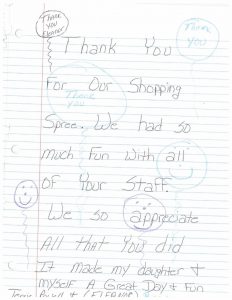 Thank
you
Eleanor
Thank
you
Thank You
For Our Shopping
Thank
you
Spree. We had so
much Fun with all
OF Your Staff.
We so appreciate
All that You did
It made my daughter &
myself A Great Day & Fun